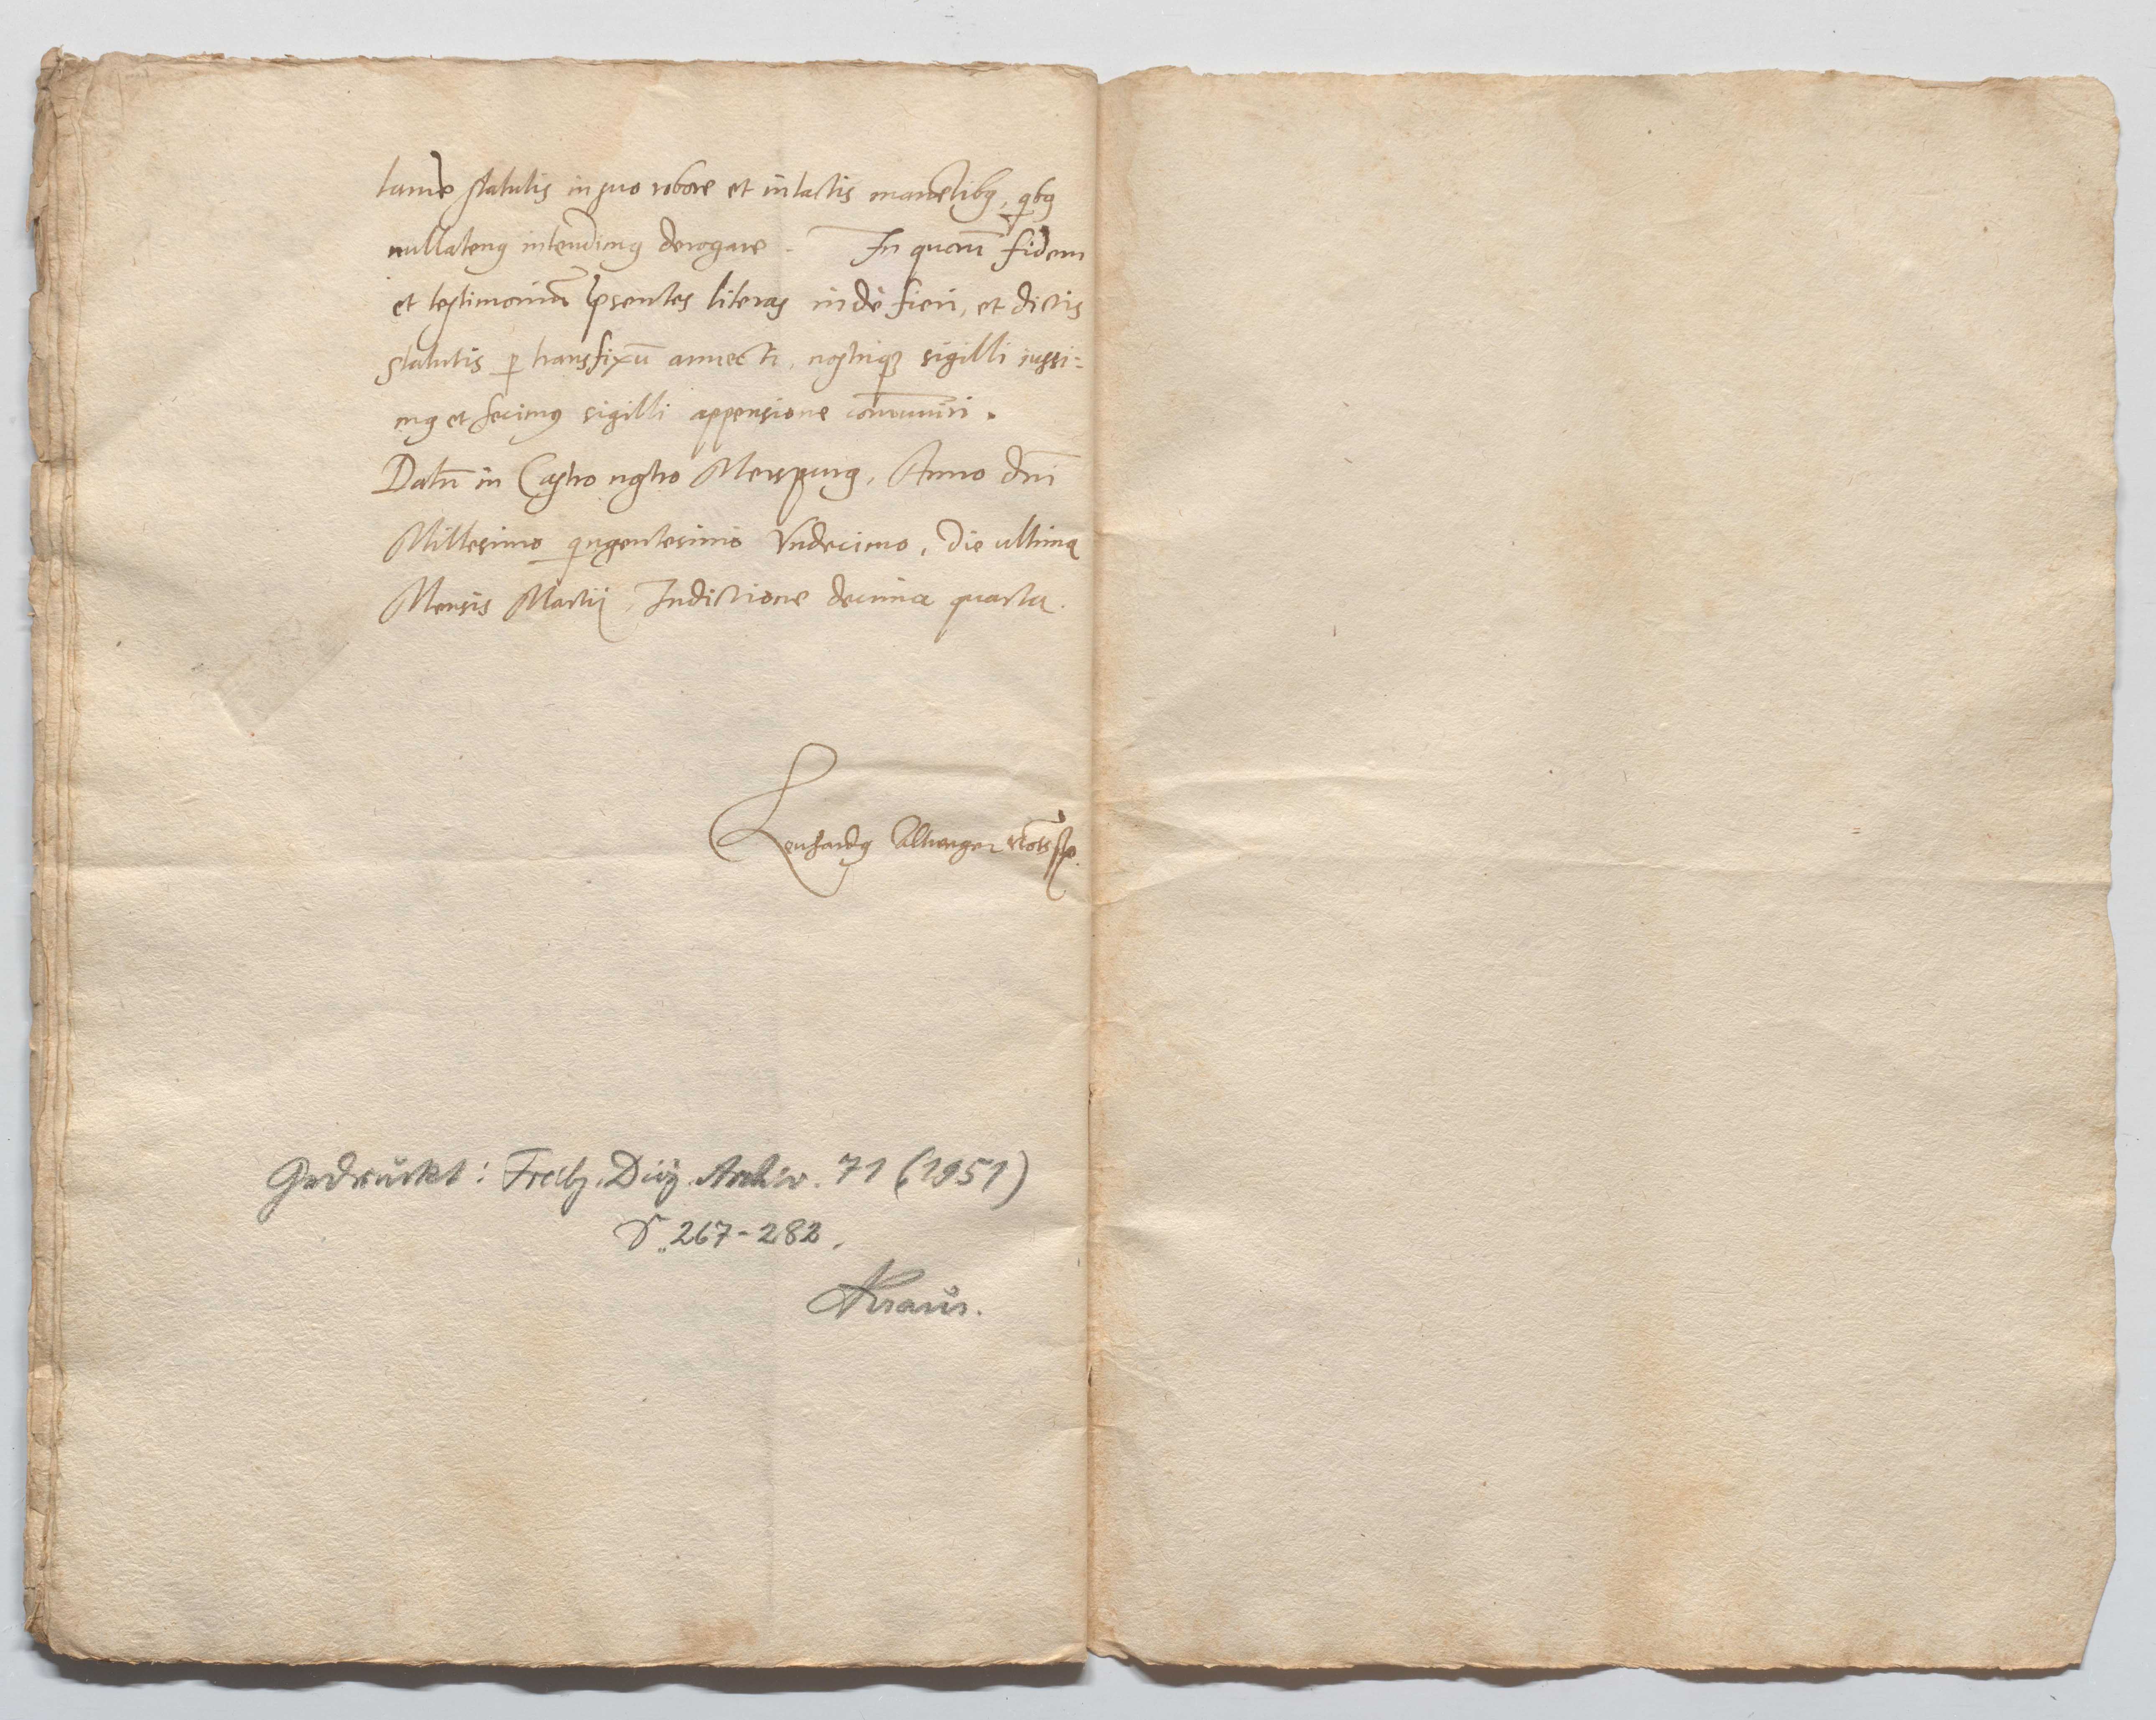 tamē statutis in suo robore et intactis manētibꝫ, qͥbꝫ
nullatenꝯ intendimꝯ derogare. In quorū fidem
et testimoniū p̄sentes literas inde fieri, et dictis
statutis ꝑ transfixū annecti, nostriqꝫ sigilli iussi=
mꝯ et fecimꝯ sigilli appensione com̄uniri.
Datū in Castro nostro Merspurg, Anno dn̄i
Millesimo qͥngentesimo Vndecimo, die ultima
Mensis Martij, Indictione decima quarta.
Lenhardꝯ
Gedruckt: Freibg. Diöz. Archiv. 71 (1951)
S. 267-282.
Kraus.